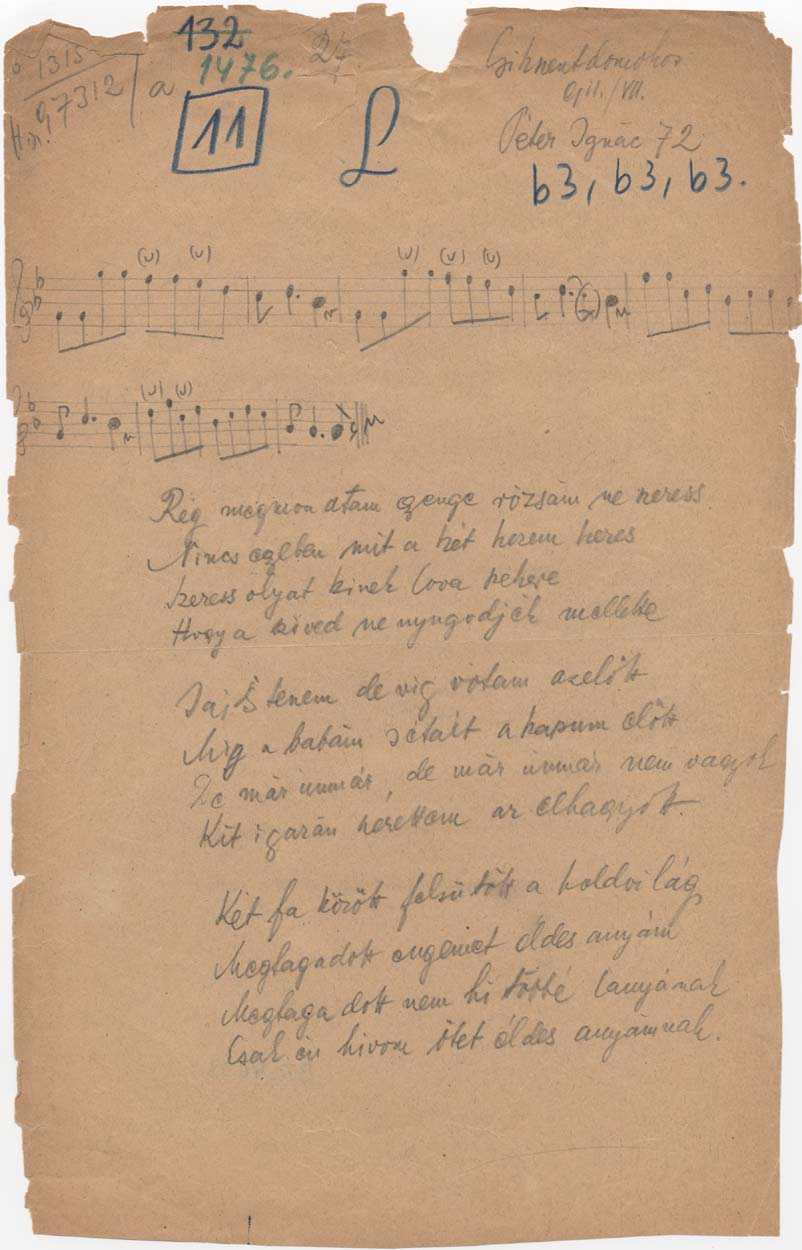 132
1476.
1315
97312
a
27
11
L
Csíkszentdomokos
VII.
Péter Ignác 72
b3, b3, b3.
(u) (u) (u) (u) (u)
(u) (u)
Rég megmondtam gyenge rózsám ne keress
Nincs ezeben mit a két kezem keres
Szeress olyat kinek lova fekete
Hogy a szived ne nyugodjék mellette
Jaj Istenem de víg vótam azelőtt
Míg a babám sétált a kapum előtt
De már immár, de már immár nem vagyok
Kit igazán szerettem az elhagyott.
Két fa között felsütött a holdvilág
Megtagadott engemet éldes anyám
Megtagadott nem hí többé lanyának
Csak én hívom őtet éldes anyámnak.